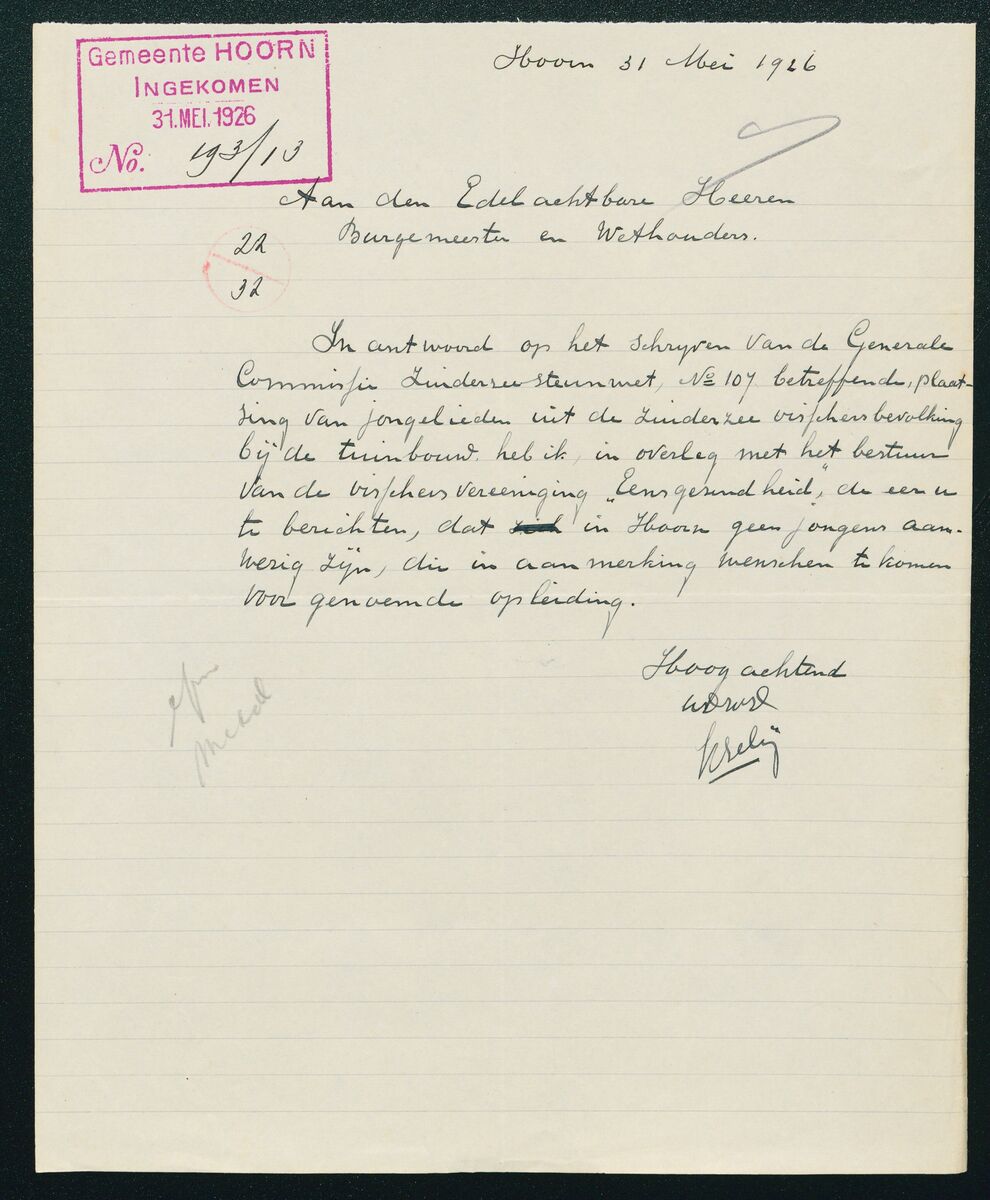 Gemeente HOORN
INGEKOMEN
31.MEI.1926
No. 193/13
Hoorn 31 Mei 1926
Aan den Edelachtbare Heeren
Burgemeester en Wethouders.
22
32
In antwoord op het schryven van de Generale
Commissie Zuiderzeesteunwet, No 107 betreffende, plaat-
sing van jongelieden uit de Zuiderzee visschersbevolking
bij de tuinbouw. heb ik, in overleg met het bestuur
van de visschersvereeniging "Eensgezindheid", de eer u
te berichten, dat zich in Hoorn geen jongens aan-
wezig zijn, die in aanmerking wenschen te komen
voor genoemde opleiding.
Hoogachtend